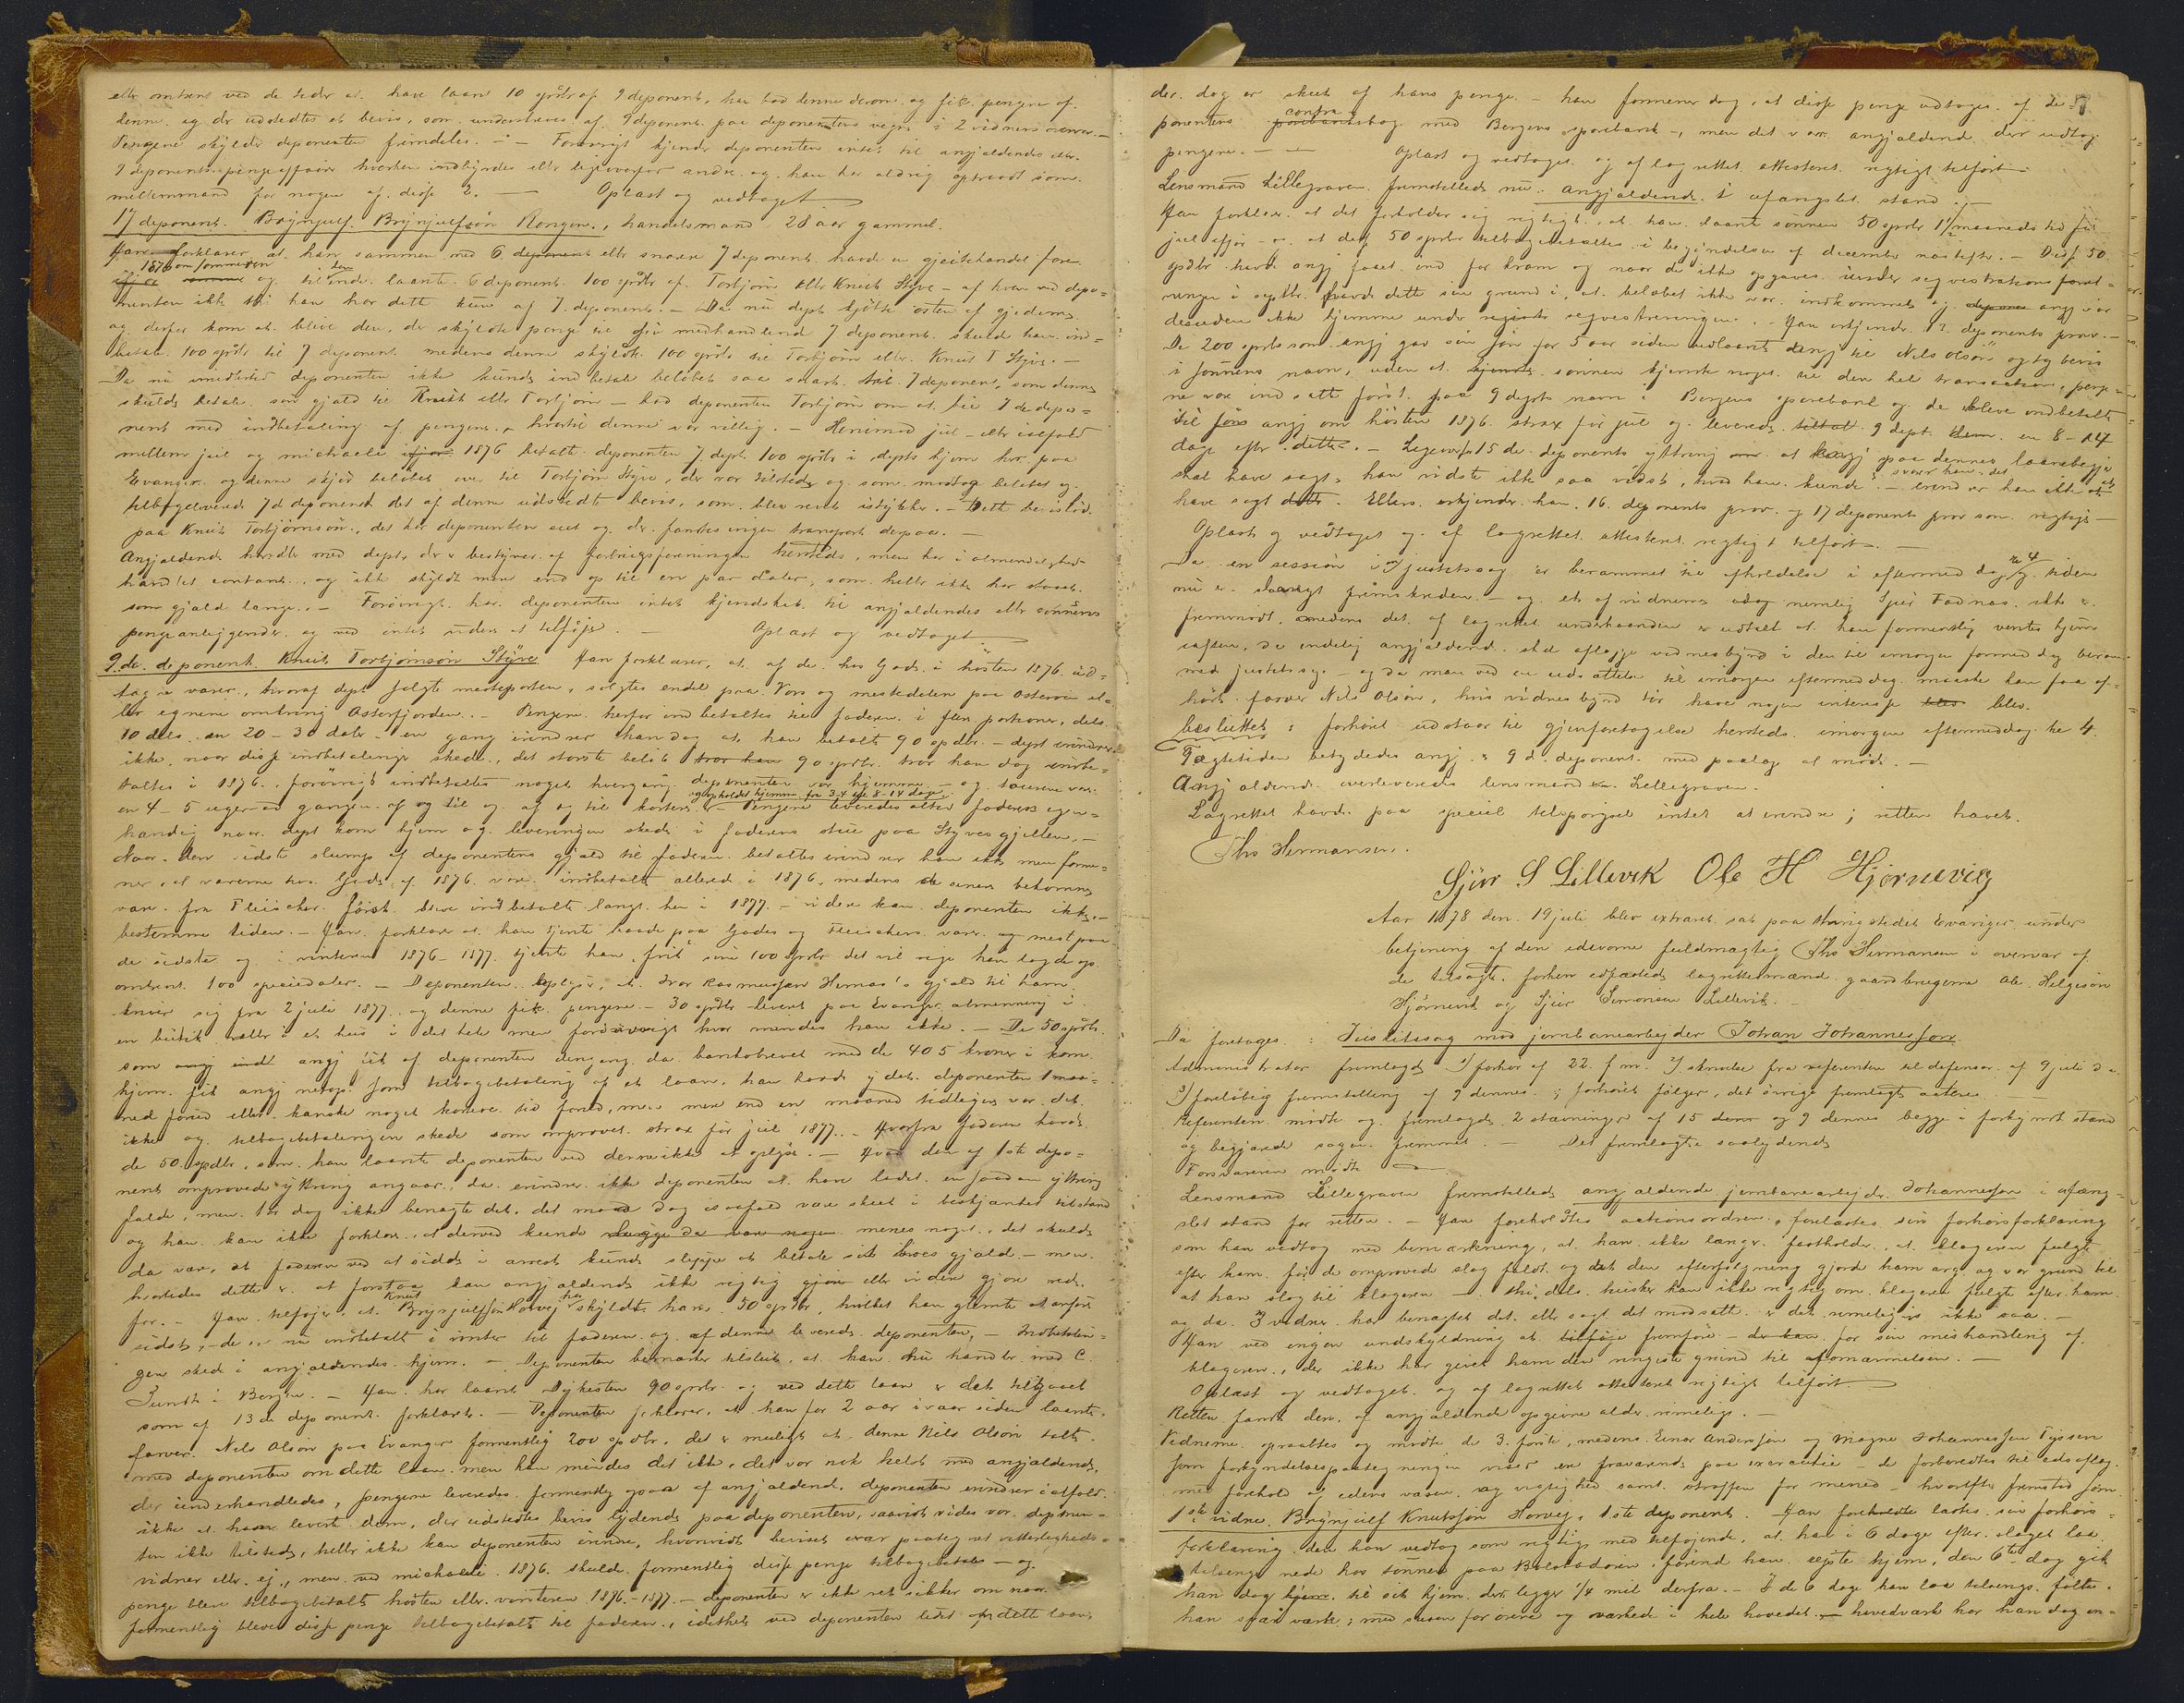 eller omtrent ved de tider at have laant 10 spdlr af 9 deponent, han bad denne derom og fik pengene af
denne og der udstedtes et bevis, som underskreves af 9 deponent paa deponentens vegne i 2 vidners overvær. —
Pengene skylder deponenten fremdeles. — Forøvrigt kjender deponenten intet til angjældendes eller
9 deponents pengeaffairer hverken indbyrdes eller ligeoverfor andre og han har aldrig optraadt som
mellemmand for nogen af disse 2. — Oplæst og vedtaget
17 deponent. Brynjulf Brynjulfsøn Rongen, handelsmand 28 aar gammel.
Han forklarer at han sammen med 6 deponent eller snarere 7 deponent havde en gjeitehandel fore
1876 om sommeren og til den ende laante 6 deponent 100 spdlr af Torbjørn eller Knut Styve — af hvem ved depo=
nenten ikke thi han har dette kun af 7 deponent. — Da nu dept kjøbte resten af gjederne
og derfor kom at blive den, der skyldte penge til sin medhandlende 7 deponent skulde han ind=
betale 100 spdlr til 7 deponent medens denne skyldte 100 spdlr til Torbjørn eller Knut T Styve. —
Da nu imidlertid deponenten ikke kunde indbetale beløbet saa snart til 7 deponent, som denne
skulde betale sin gjæld til Knut eller Torbjørn — bad deponenten Torbjørn om at bie 7de depo=
nent med indbetaling af pengene, hvortil denne var villig. — Henimod jul — eller ialfald
mellem jul og michaeli 1876 betalte deponenten 7 dept 100 spdlr i depts hjem her paa
Evanger og denne skjød beløbet over til Torbjørn Styve, der var tilstede og som modtog beløbet og
tilbageleverede 7d deponent det af denne udstedte bevis, som blev revet istykker. — Dette bevis lød
paa Knut Torbjørnsøn, det har deponenten seet og der fandtes ingen transport derpaa. —
Angjældende handler med depts der er bestyrer af forbrugsforeningen hersteds, men har i almindelighed
handlet contant og ikke skyldt mere end op til en par daler, som heller ikke har staaet
som gjæld længe. — Forøvrigt har deponenten intet kjendskab til angjældendes eller sønnens
pengeanliggender og ved intet videre at tilføje. — Oplæst og vedtaget.
9de deponent Knut Torbjørnsøn Styve Han forklarer, at af de hos Gade i høsten 1876 ud=
tagne varer, hvoraf dept solgte mesteparten, solgtes endel paa Vors og mestedelen paa Osterøen el=
ler egnene omkring Osterfjorden. — Pengene herfor indbetaltes til faderen i flere portioner, dels
10 dels en 20 – 30 daler en gang erindrer han dog at han betalte 90 spdlr. — dept erindrer
ikke, naar disse indbetalinger skede, det største beløb 90 spdlr tror han dog indbe=
taltes i 1876. forøvrigt indbetaltes noget hvergang deponenten var hjemme og tourene var
en 4 – 5 uger ad gangen af og til og af og til kortere og opholdet hjemme fra 3-4 til 8-14 dage. — Pengene leveredes altid faderens egen=
hændig naar dept kom hjem og leveringen skede i faderens stue paa Styvesgjellen. —
Naar den sidste slump af deponentens gjæld til faderen betaltes erindrer han ikke men forme=
ner at varerne hos Gade af 1876 var indbetalt allerede i 1876, medens de senere bekomne
varer fra Fleischer først blev indbetalt langt hen i 1877. — videre kan deponenten ikke
bestemme tiden. — Han forklarer at han tjente baade paa Gades og Fleischers varer og mest paa
de sidste og i vinteren 1876–1877 tjente han frit sine 100 spdlr det vil sige han lagde op
omtrent 100 speciedaler. — Deponenten oplyser, at Ivar Rasmussen Hernæs's gjæld til ham
skriver sig fra 2 juli 1877 og denne fik pengene — 30 spdlr leveret paa Evanger almenning i
en butik eller i et hus i det hele men forøvrigt hvor mindes han ikke. — De 50 spdlr
som angj fik af deponenten dengang da bankobrevet med de 405 kroner i kom
hjem fik angj netop som tilbagebetaling af et laan, han havde gjort deponenten 1 maa=
ned forud eller kanske noget kortere tid forud, men mere end en maaned tidligere var det
ikke og tilbagebetalingen skede som omprovet strax før jul 1877. — Hvorfra faderen havde
de 50 spdlr, som han laante deponenten ved denne ikke at oplyse. — Hvad den af 1ste depo=
nent omprovede yttring angaar, da erindrer ikke deponenten at have ladet en saadan yttring
falde, men tør dog ikke benægte det, det maa dog isaafald være skeet i beskjænket tilstand
og han kan ikke forklare, at derved kunde menes noget, det skulde
da være, at faderen ved at sidde i arrest kunde slippe at betale sit livs gjæld. — men
hvorledes dette er at forstaa kan angjældende ikke rigtig gjøre eller videre gjøre rede
for. — Han tilføjer, at Knut Brynjulfsøn Horvej har skyldt ham 50 spdlr, hvilket han glemte at anføre
sidst, — de er nu indbetalt i vinter til faderen og af denne leveret deponenten, — Indbetalin=
gen skede i angjældendes hjem. — Deponenten bemærker tilslut, at han nu handler med C.
Sundt i Bergen. — Han har laant Dyvesten 90 spdlr og ved dette laan er det tilgaaet
som af 13de deponent forklaret. — Deponenten forklarer, at han for 2 aar ivaar siden laante
farver Nils Olsøn paa Evanger formentlig 200 spdlr, det er muligt at denne Nils Olsøn talte
med deponenten om dette laan men han mindes det ikke, det var nok helst med angjældende,
der underhandledes, pengene leveredes formentlig ogsaa af angjældende, deponenten erindrer ialfald
ikke at have leveret dem, der udstedtes bevis lydende paa deponenten, saavidt vides var deponen=
ten ikke tilstede, heller ikke kan deponenten erindre, hvorvidt beviset var paategnet vitterligheds=
vidner eller ej, men ved michaeli 1876 skulde formentlig disse penge tilbagebetales — og
penge blev tilbagebetalt høsten eller vinteren 1876–1877. — deponenten er ikke ret sikker om naar
formentlig blev disse penge tilbagebetalt til faderen, idethele ved deponenten lidet af dette laan,
der dog er skeet af hans penge. — han formener dog, at disse penge udtoges af de=
ponentens contrabog med Bergens sparebank —, men det var angjældende, der udtog
pengene. — Oplæst og vedtaget og af lagrettet attesteret rigtigt tilført —
Lensmand Lillegraven fremstillede nu angjældende i ufængslet stand. —
Han forklarer at det forholder sig rigtigt, at han laante sønnen 50 spdlr 1½ maaneds tid før
jul ifjor — og at disse 50 spdlr tilbagebetaltes i begyndelsen af december næstefter. — Disse 50
spdlr havde angj faaet ind for kram og naar de ikke opgaves under sequestrationsforret=
ningen i septbr. havde dette sin grund i, at beløbet ikke var indkommet og angj var
desuden ikke hjemme under sequestreringen. — Han erkjender 12 deponents prov. —
De 200 spdlr som angj gav sin søn for 5 aar siden udlaante angj til Nils Olsøn og tog bevis
i sønnens navn, uden at sønnen kjendte noget til den hele transaction, penge=
ne var indsatte først paa 9 depts navn i Bergens sparebank og de bleve indbetalte
til angj om høsten 1876 strax før jul og leverede 9 dept en 8 – 14
dage efter dette. — Ligeoverfor 15de deponents yttring om at angj paa dennes laanebegjær
skal have sagt, han vidste ikke saa vidst, hvad han kunde — svarer han, det erindrer han ikke at
have sagt. Ellers erkjender han 16 deponents prov og 17 deponents prov som rigtigt —
Oplæst og vedtaget og af lagrettet attesteret rigtigt tilført. —
Da en session i en justitssag er berammet til afholdelse i eftermiddag kl 4 og tiden
nu er saavidt fremskreden — og et af vidnerne idag nemlig Sjur Fadnæs ikke er
fremmødt, medens det af lagrettet underhaanden er udtalt at han formentlig ventes hjem
iaften, da endelig angjældende skal aflægge vidnesbyrd i den til imorgen formiddag beram=
mede justitssag — og da man ved en udsættelse til imorgen eftermiddag maaske kan faa af=
hørt farver Nils Olsøn, hvis vidnesbyrd tør have nogen interesse blev
besluttet: forhøret udstaar til gjenforetagelse hersteds imorgen eftermiddag kl 4.
Tægtetiden betydedes angj. & 9d deponent med paalæg at møde. —
Angjældende overleveredes lensmand Lillegraven.
Lagrettet havde paa speciel tilspørgsel intet at erindre; retten hævet.
Ths Hermansen.
Sjur S Lillevik Ole H Hjørnevig
Aar 1878 den 19 juli blev extraret sat paa thingstedet Evanger under
betjening af den edsvorne fuldmægtig Ths Hermansen i overvær af
de tilsagte forhen edfæstede lagrettesmænd gaardbrugerne Ole Helgesøn
Hjørnevik og Sjur Simonsen Lillevik. —
Da foretages: Justitssag mod jernbanearbejder Johan Johannessen
Administrator fremlagde 1) forhør af 22 f.m. 2) skrivelse fra referenten til defensor af 9 juli d.a.
3) foreløbig fremstilling af 9 dennes; forhøret følger, det øvrige fremlagte acteres.
Referenten mødte og fremlagde 2 stævninger af 15 og 9 dennes begge i forkyndt stand
og begjærede sagen fremmet. — Det fremlagte saalydende
Forsvareren mødte
Lensmand Lillegraven fremstillede angjældende jernbanearbejder Johannessen i ufæng=
slet stand for retten. — Han foreholdtes actionsordren, forelæstes sin forhørsforklaring
som han vedtog med bemærkning, at han ikke længer fastholder, at klageren fulgte
efter ham før de omprovede slag faldt og at den efterfølgning gjorde ham arg og var grund til
at han slog til klageren — thi dels husker han ikke rigtig om klageren fulgte efter ham
og da 3 vidner har benægtet det eller sagt det modsatte er det rimeligvis ikke saa. —
Han ved ingen undskyldning at fremføre for sin mishandling af
klageren, der ikke har givet ham den ringeste grund til overmmelsen. —
Oplæst og vedtaget og af lagrettet attesteret rigtigt tilført.
Retten fandt den af angjældende opgivne alder rimelig. —
Vidnerne opraabtes og mødte de 3 første, medens Einar Andersen og Magne Johannessen Tyssen
som forkyndelsespaategningen viser er fraværende paa exercitie — de forberedtes til edsaflæg
med forehold af edens væsen og vigtighed samt straffen for mened — hvorefter fremstod som
1ste vidne Brynjulf Knutsøn Horvej, 1ste deponent. Han forelæstes sin forhørs=
forklaring den han vedtog som rigtig med tilføjende, at han i 6 dage efter slaget laa
tilsengs nede hos sønnen paa Bolstadøren førend han rejste hjem, den 6te dag gik
han dog til sit hjem der ligger ¼ mil derfra. — I de 6 dage han laa tilsengs følte
han svær værk; med susen for ørene og værkede i hele hovedet. — hovedværk har han dog en=